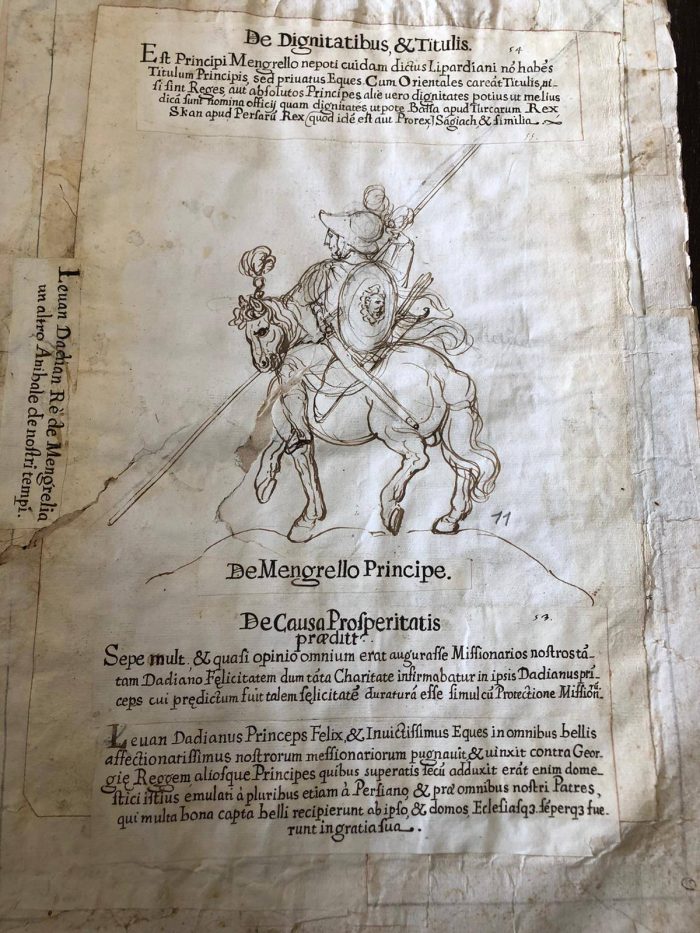 De Dignitatibus, & Titulis.
54
Est Principi Mengrello nepoti cuidam dictus Lipardiani nō habēs
Titulum Principis, sed priuatus Eques. Cum Orientales careāt Titulis, ni-
si sint Reges, aut absolutos Principes, aliē vero dignitates potius ut melius
dicā sunt nomina officij quam dignitates ut pote Bassa apud Turcarum Rex
Skan apud Persarū Rex (quod idē est aut Prorex) Sagiach, & similia
55.
Leuan Dadian Rè de Mengrelia
un altro Anibale de nostri tempi.
11
De Mengrello Principe.
De Causa Prosperitatis
præditt
53.
Sepe mult. & quasi opinio omnium erat augurasse Missionarios nostros tā-
tam Dadiano Felicitatem dum tāta Charitate infirmabatur in ipsis Dadianus pri-
ceps cui prędictum fuit talem felicitatē duraturā esse simul cū Protectione Mission.
Leuan Dadianus Princeps Felix, & Inuictissimus Eques in omnibus bellis
affectionatissimus nostrorum messionariorum pugnauit & uinxit contra Geor-
gię Reggem aliosque Principes quibus superatis secū adduxit erāt enim dome-
stici istius emulati à pluribus etiam à Persiano, & præ omnibus nostri Patres,
qui multa bona capta belli recipierunt ab ipso, & domos Eclesiasq3 sēperq3 fue-
runt in gratia sua.